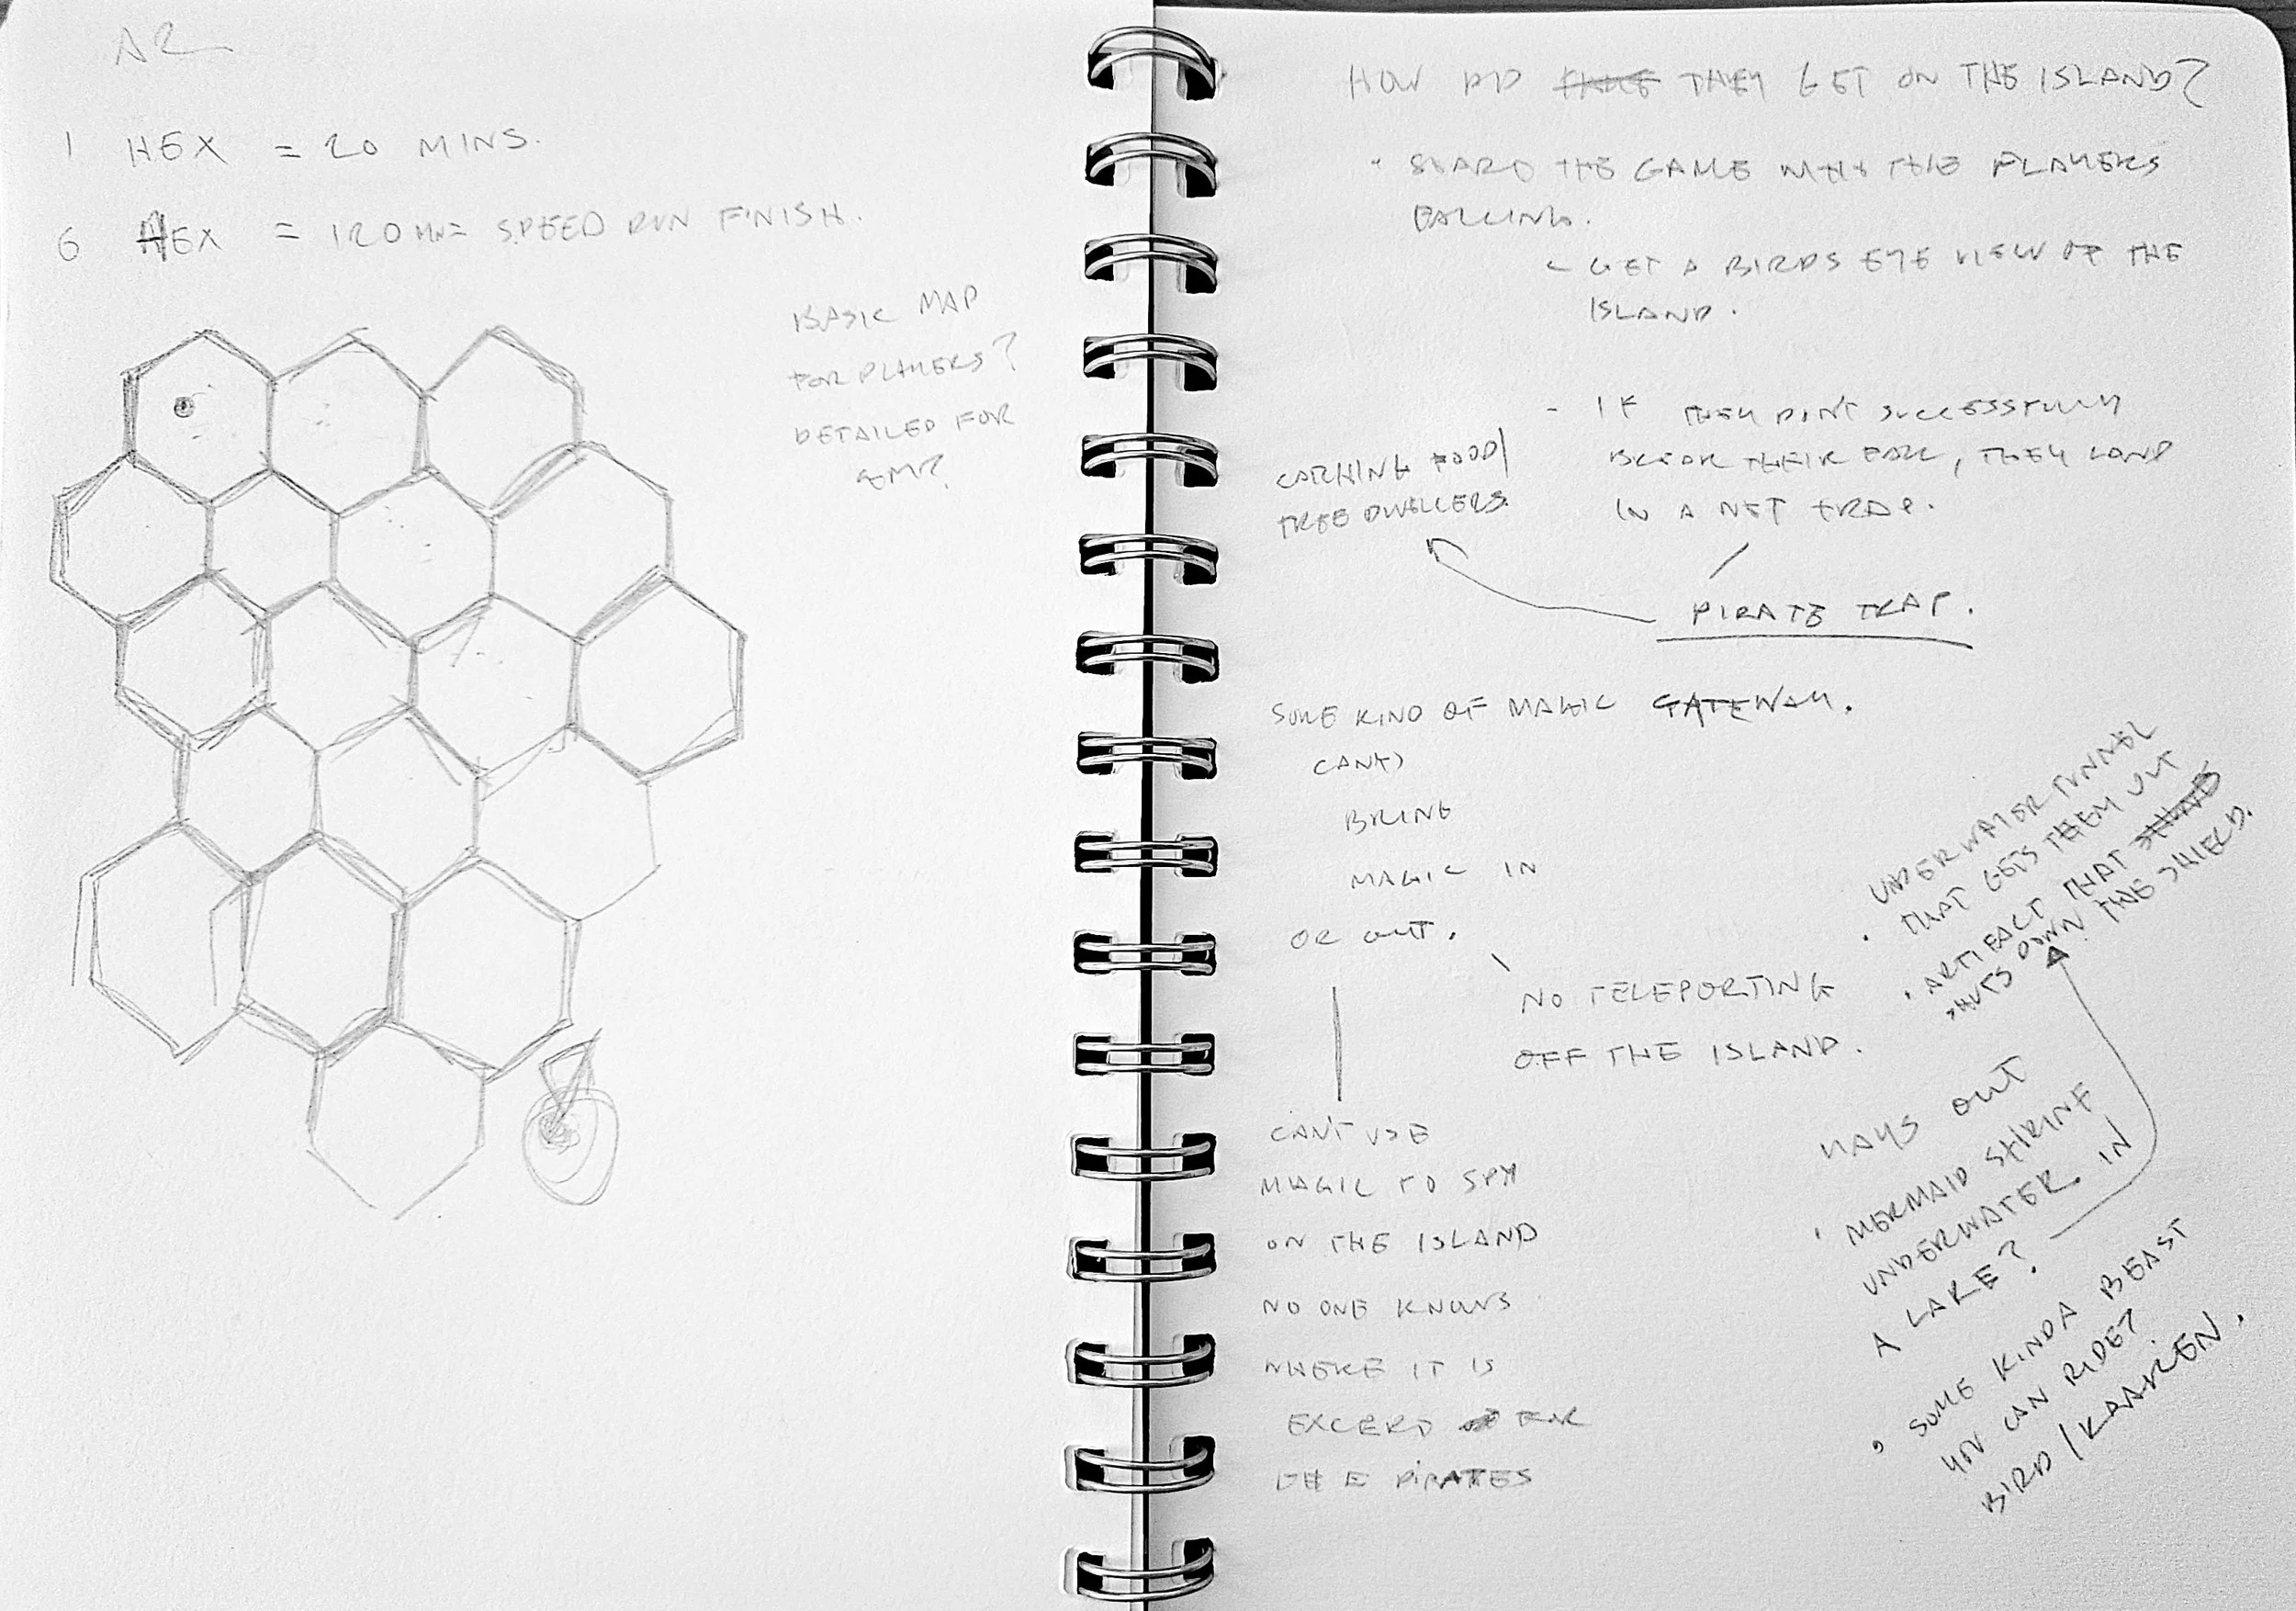 1 HEX = 20 MINS.
6 HEX = 120 MIN = SPEED RUN FINISH.
BASIC MAP
FOR PLAYERS?
DETAILED FOR
GM?
HOW DID THEY GET ON THE ISLAND?
START THE GAME WITH THE PLAYERS
FALLING.
- GET A BIRDS EYE VIEW OF THE
ISLAND.
- IF THEY DON'T SUCCESSFULLY
BREAK THEIR FALL, THEY LAND
IN A NET TRAP.
CATCHING FOOD/
TREE DWELLERS.
PIRATE TRAP.
SOME KIND OF MAGIC GATEWAY.
CANT
BRING
MAGIC IN
OR OUT.
NO TELEPORTING
OFF THE ISLAND.
CAN'T USE
MAGIC TO SPY
ON THE ISLAND
NO ONE KNOWS
WHERE IT IS
EXCEPT FOR
THE PIRATES
UNDERWATER TUNNEL
THAT GETS THEM OUT
• ARTIFACT THAT
SHUTS DOWN THE SHIELD.
WAYS OUT
• MERMAID SHRINE
UNDERWATER IN
A LAKE?
• SOME KINDA BEAST
YOU CAN RIDE?
BIRD / KRAKEN.